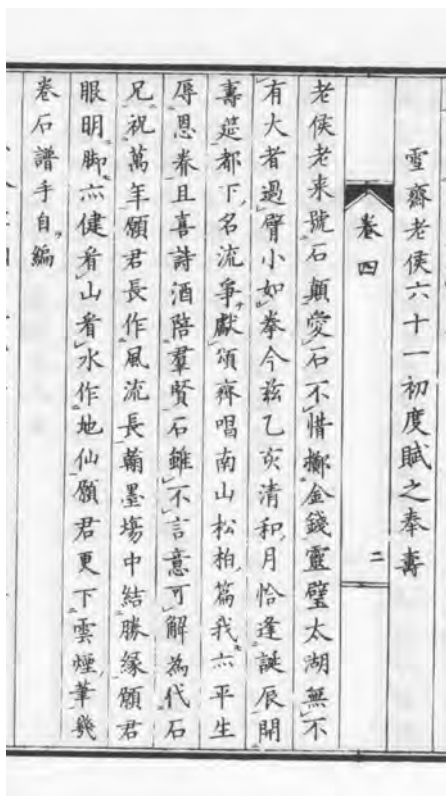 雪齋老侯六十一初度賦之奉壽
卷四
二
老侯老来號石顛愛石不惜擲金錢靈璧太湖無不
有大者過臂小如拳今玆乙亥清和月恰逢誕辰開
壽莚都下名流爭獻頌齊唱南山松柏篇我亦平生
辱恩眷且喜詩酒陪羣賢石雖不言意可解為代石
兄祝萬年願君長作風流長翰墨塲中結勝緣願君
眼明脚亦健看山看水作地仙願君更下雲煙筆幾
卷石譜手自編